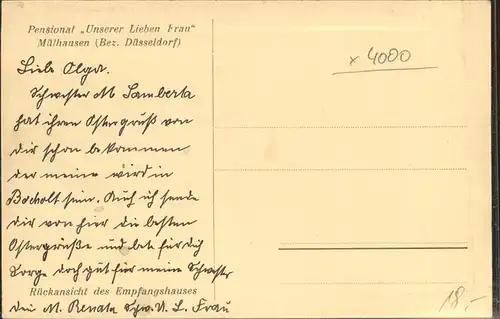 Pensionat „Unserer Lieben Frau“
Mülhausen (Bez. Düsseldorf)
x 4000
Liebe Olga.
Schwester M Lamberta
hat ihren Ostergruß von
dir schon bekommen
der meine wird in
Bocholt sein. Auch ich sende
dir von hier die besten
Ostergrüße und bete für dich
Sorge doch gut für meine Schwester
Rückansicht des Empfangshauses
dein M. Renata Schw. U. L. Frau
18,-